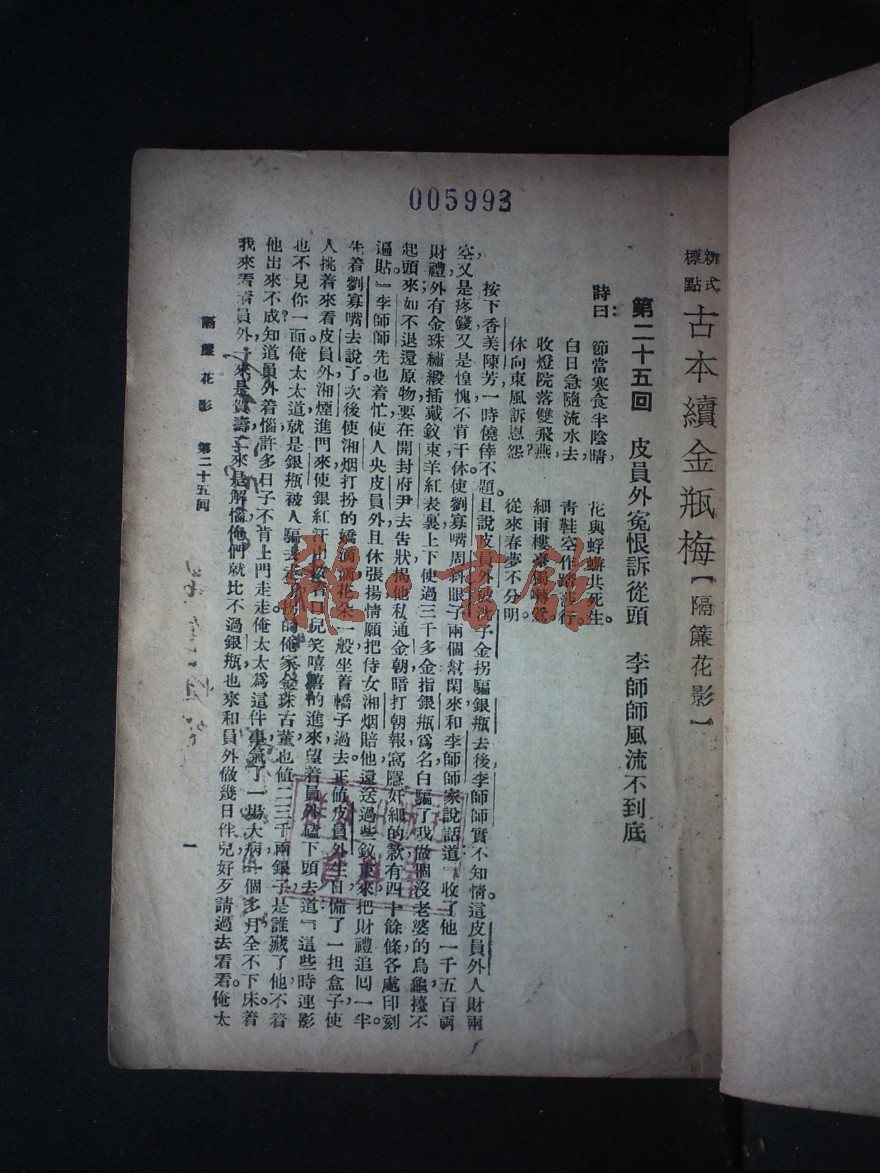 005993
新式
標點
古本續金瓶梅【隔簾花影】
第二十五回 皮員外冤恨訴從頭 李師師風流不到底
詩曰： 節當寒食半陰晴， 花與蜉蝣共死生。
白日急隨流水去， 青鞋空作踏莎行。
收燈院落雙飛燕， 細雨樓臺獨囀鶯。
休向東風訴恩怨？ 從來春夢不分明。
按下香美陳芳一時僥倖不題。且說皮員外被沈子金拐騙銀瓶去後，李師師實不知情。這皮員外人財兩
空，又是疼錢，又是惶愧，不肯干休，使劉寡嘴周斜眼子兩個幫閑來和李師師家說話，道：『收了他一千五百兩
財禮外，有金珠繡緞插戴釵束羊紅表裏，上下使過三千多金，指銀瓶爲名，白騙了我，做個沒老婆的烏龜，擡不
起頭來；如不退還原物，要在開封府尹去告狀，揭他私通金朝，暗打朝報，窩隱奸細的款，有四十餘條，各處印刻
遍貼。』李師師先也着忙，使人央皮員外且休張揚，情願把侍女湘烟賠他，還送過些釵束來，把財禮追回一半。
先着劉寡嘴去說了，次後使湘烟打扮的嬌滴滴花朵一般，坐着轎子過去。正值皮員外生日，備了一担盒子，使
人挑着來看皮員外。湘煙進門來，使銀紅汗巾掩着口兒，笑嘻嘻的進來，望着員外磕下頭去，道：『這些時連影
也不見你？一面俺太太道就是銀瓶被人騙去，拐的俺家金珠古董也值二三千兩銀子，是誰藏了他，不着
他出來不成？知道員外着惱，許多日子不肯上門走走，俺太太爲這件事氣了一場大病，一個多月全不下床，着
我來看看員外，一來是賀壽，二來是解惱，俺們就比不過銀瓶，也來和員外做幾日伴兒，好歹請過去看看。俺太
隔簾花影 第二十五回 一
雅昌書館